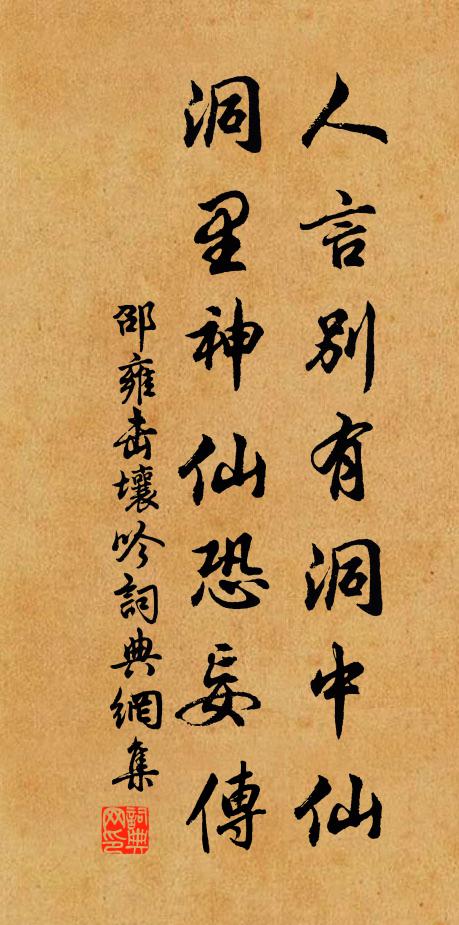 人言别有洞中仙
洞里神仙恐妄傳
邵雍擊壤吟詞典網集
詞典网印